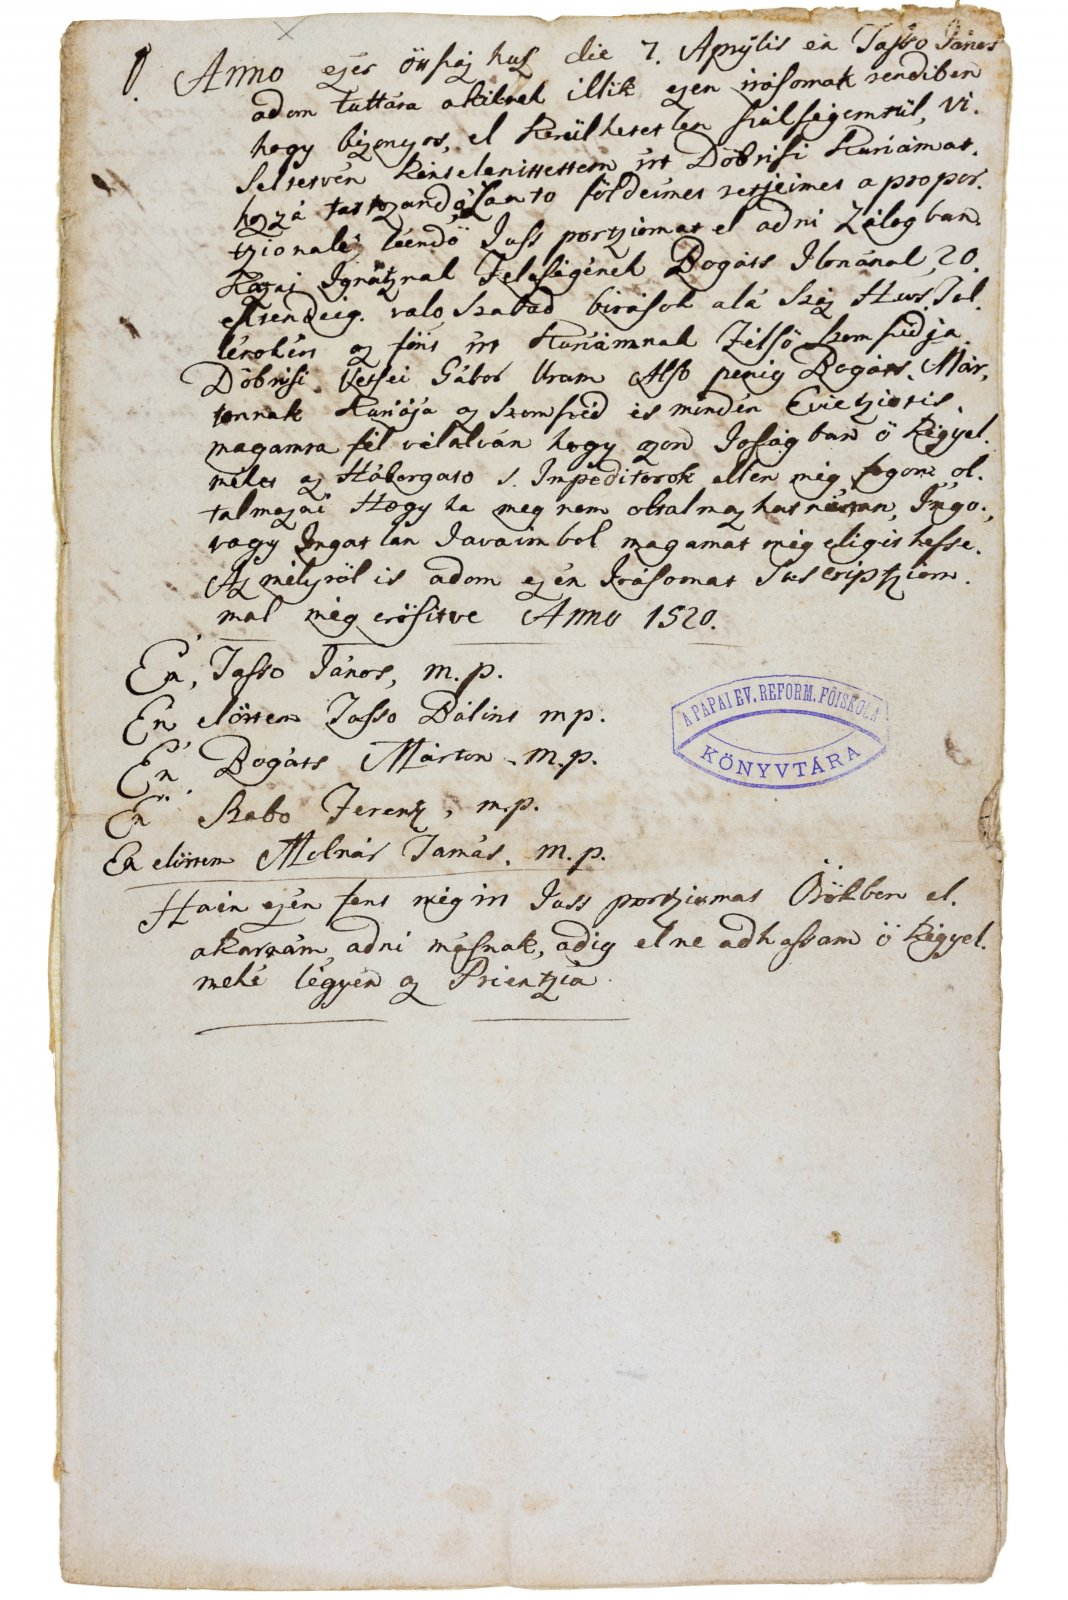 Anno ezer ötszáz husz die 7. Aprylis én Jasso János
adom tuttára akiknek illik ezen irásomnak rendiben
hogy bizonyos, el kerülhetetlen szükségemtül, Vi.
seltetvén kénteleníttettem írt Döbrisi Kuriámat.
hozzá tartozandó szanto földeimet retjeimet a propor.
tzionale léendö Juss portziomat el adni Zálogban
Ignátznak Feleségének Bogáts Ilonának 20.
esztendeig. valo szabad birások alá Száz Husz Tal.
lérokért az fent írt Kuriámnak Felsö szomszédja
Döbrisi Gábor Uram Alsó penig Bogáts Már,
tonnak Kuriája az szomszéd és mindén Evictziotis.
magamra fel vállalván hogy azon Joszágban ö kégyel.
méket az Háborgato s. Impeditorok ellen még fogom ol.
talmazni Hogy ha meg nem oltalmazhatnám, Ingo.,
vagy Ingatlan Javaimbol magamat még eligithesse.
Az mélyröl is adom ezén Irásomat Suscriptziom.
mal még erösitve Anno 1520.
En, Jasso János, m.p.
En elöttem Jasso Bálint mp.
En Bogáts Márton. m.p.
En Szabo Ferentz, m.p.
En elöttem Molnár Tamás. m.p.
A PÁPAI EV. REFORM. FŐISKOLA
KÖNYVTÁRA
Ha én ezén fent még irt Juss portziomat Örökben el.
akarnám adni másnak, adig el ne adhassam ö kégyel.
meké légyén az Prientzia